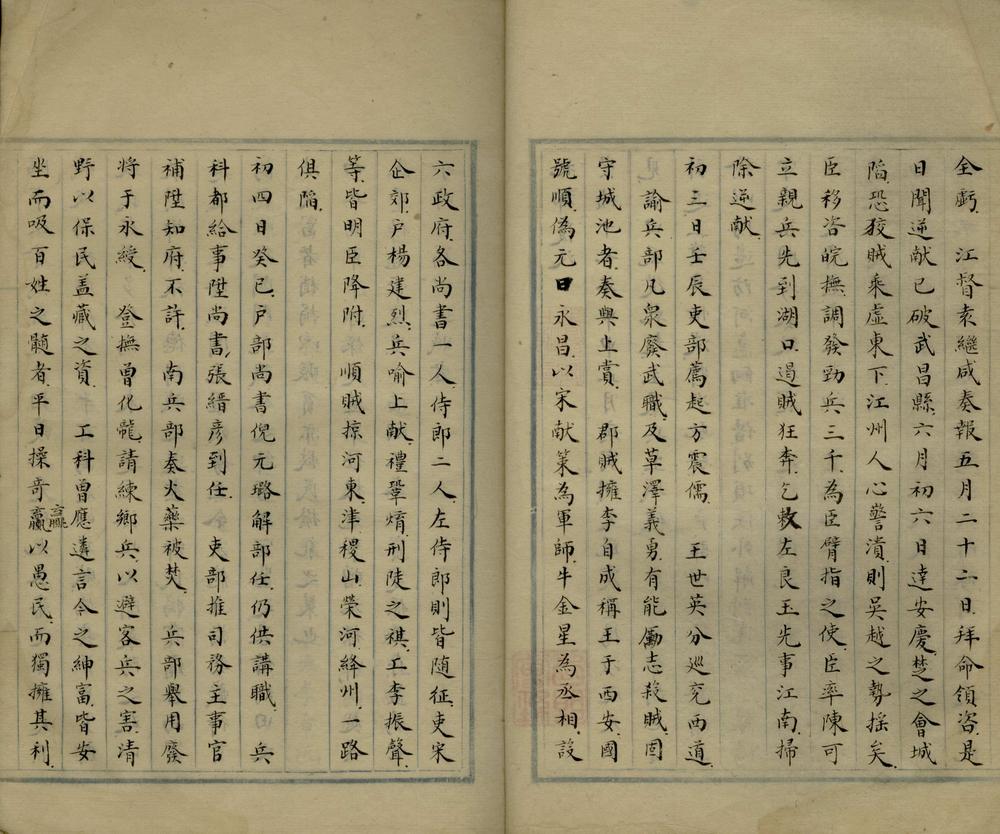 全虧　江督袁繼咸奏報五月二十二日拜命領咨是
日聞逆献已破武昌縣六月初六日達安慶楚之會城
陷恐狡賊乘虛東下江州人心警潰則吳越之勢揺矣
臣移咨皖撫調發勁兵三千為臣臂指之使臣率陳可
立親兵先到湖口遏賊狂奔乞敕左良玉先事江南掃
除逆献
初三日壬辰吏部薦起方震儒　王世英分巡兖西道
諭兵部凡衆廢武職及草澤義勇有能勵志殺賊固
守城池者奏與上賞　郡賊擁李自成稱王于西安國
號順偽元曰永昌以宋献策為軍師牛金星為丞相設
六政府各尚書一人侍郎二人左侍郎則皆随征吏宋
企郊户楊建烈兵喻上献禮鞏焴刑陡之祺工李振聲
等皆明臣降附　順賊掠河東津稷山榮河絳州一路
俱陥
初四日癸已户部尚書倪元璐解部任仍供講職　兵
科都給事陞尚書張縉彦到任　吏部推司務主事官
補陞知府不許　南兵部奏火藥被焚　兵部舉用廢
将于永綬　登撫曽化龍請練鄉兵以避客兵之害清
野以保民盖藏之資　工科曽應遴言今之紳富皆安
坐而吸百姓之髓者平日操竒贏以愚民而獨擁其利